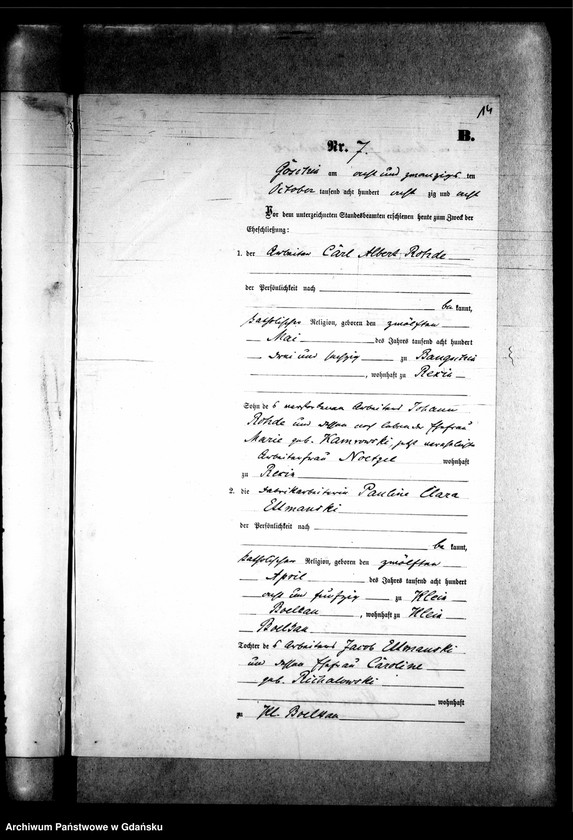 14
B.
Nr. 7.
am acht und zwanzigsten
October tausend acht hundert acht zig und acht
Vor dem unterzeichneten Standesbeamten erschienen heute zum Zweck der
Eheschließung:
1. der Arbeiter Carl Albert Rohde
der Persönlichkeit nach
be kannt,
katholischer Religion, geboren den zwölften
Mai des Jahres tausend acht hundert
drei und zu
, wohnhaft zu Rexin
Sohn des verstorbenen Arbeiters Johann
Rohde und dessen noch lebender Ehefrau
Marie geb. Kamrowski jetzt verehelichte
Arbeiterfrau Noetzel wohnhaft
zu Rexin
2. die Fabrikarbeiterin Pauline Clara
Ellmanski
der Persönlichkeit nach
be kannt,
katholischer Religion, geboren den zwölften
April des Jahres tausend acht hundert
acht und fünfzig zu Klein
Boelkau, wohnhaft zu Klein
Boelkau
Tochter des Arbeiters Jacob Ellmanski
und dessen Ehefrau Caroline
geb. Richalowski
wohnhaft
zu Kl. Boelkau
Archiwum Państwowe w Gdańsku